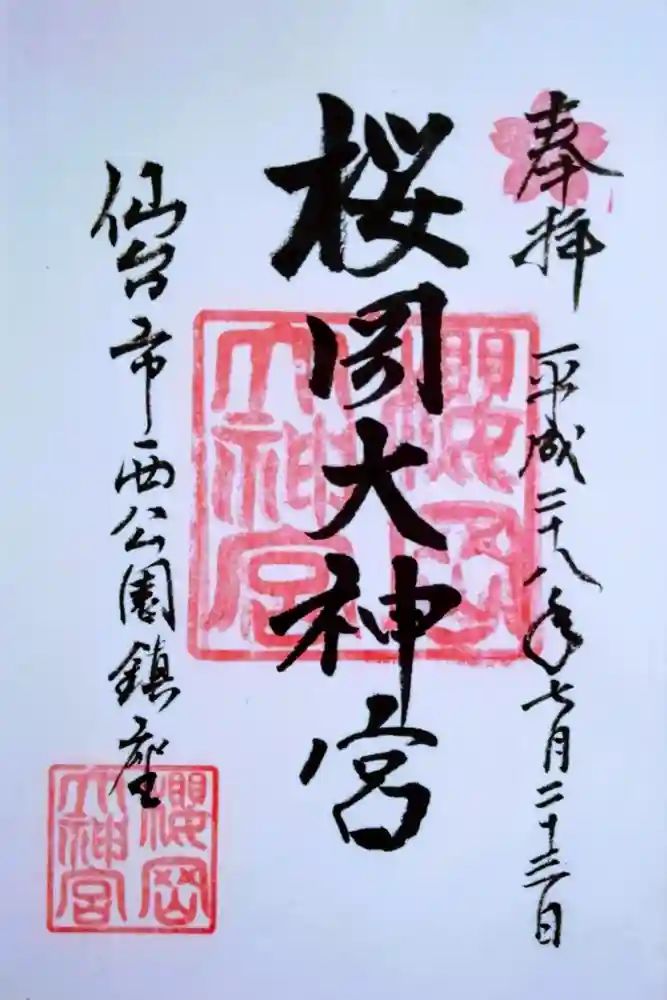 奉拝
平成二十八年七月二十三日
桜岡大神宮
櫻岡
大神宮
仙台市西公園鎮座
櫻岡
大神宮